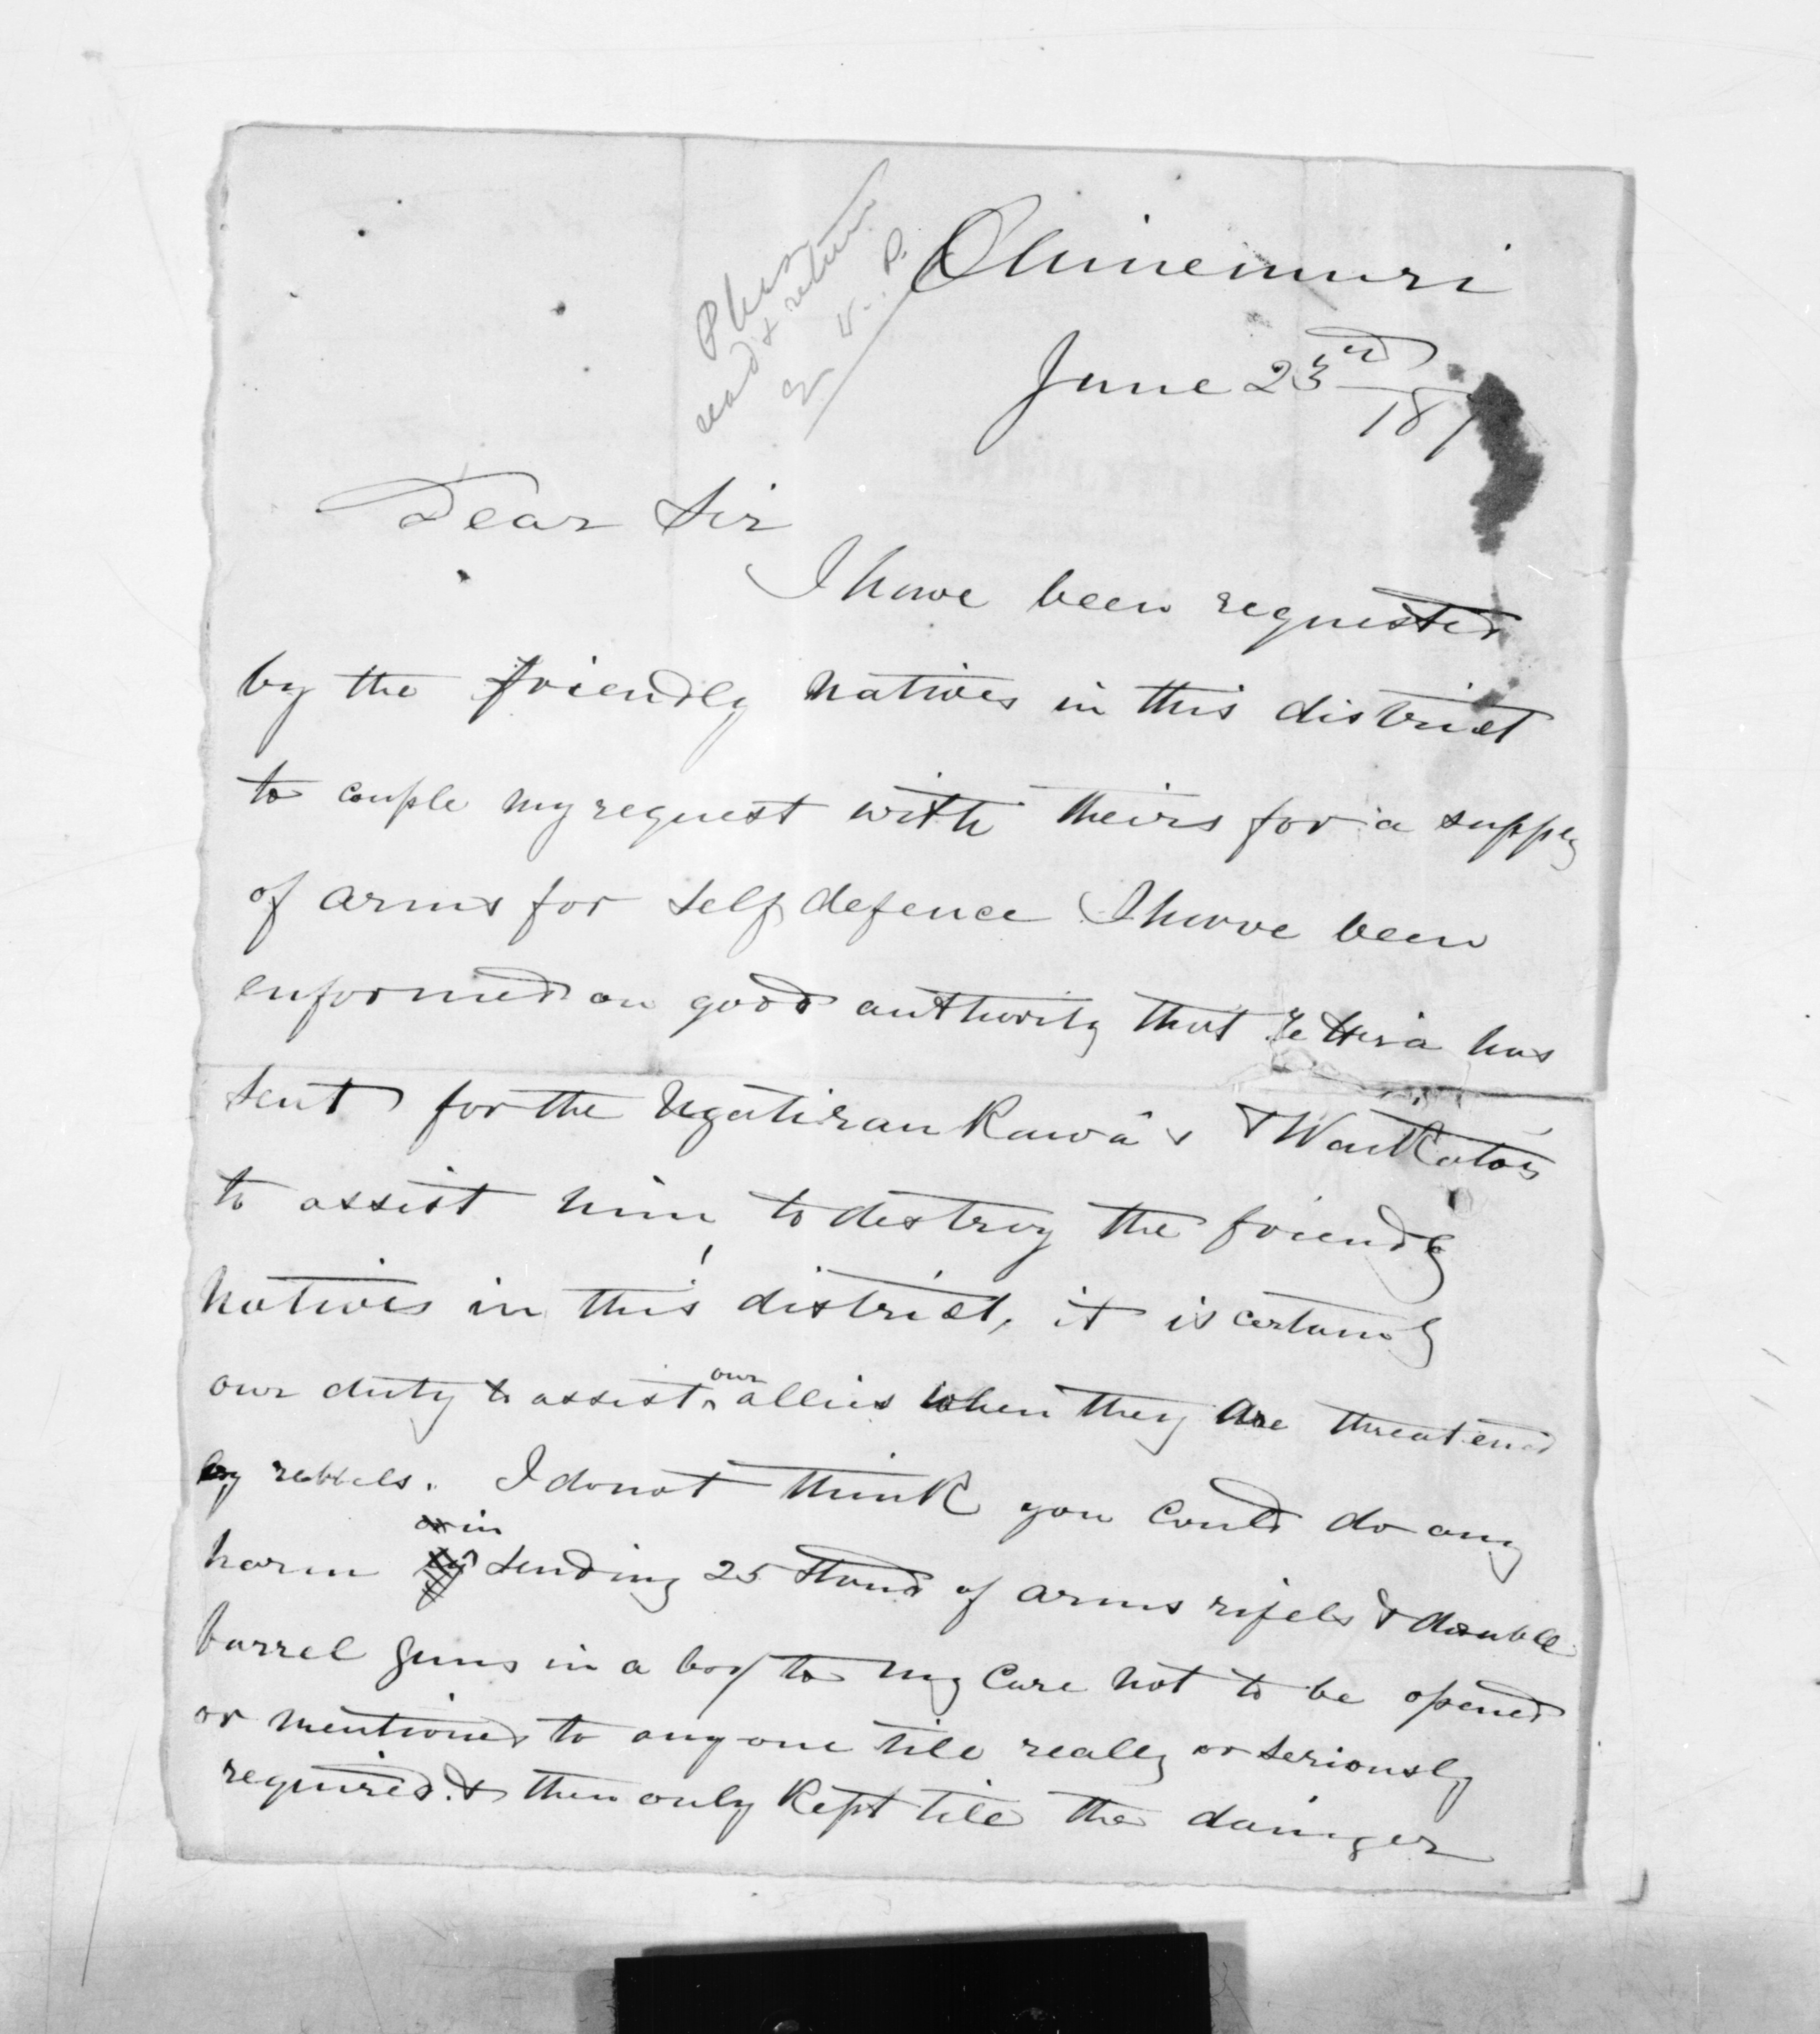 Please
read & return
Ohinemuri
June 23rd
187
Dear Sir
I have been requested
by the friendly natives in this district
to couple my request with theirs for a supply
of arms for self defence I have been
enformed on good authority that Te Hira has
sent for the Ngatiraukawa's & Waikatos
to assist him to destroy the friendly
natives in this district, it is certainly
our duty to assist our allies when they are threatened
by rebbels. I do not think you could do any
harm in sending 25 stand of arms rifels & double
barrel guns in a box to my care not to be opened
or mentioned to anyone till really or seriously
required. & then only kept till the dainger